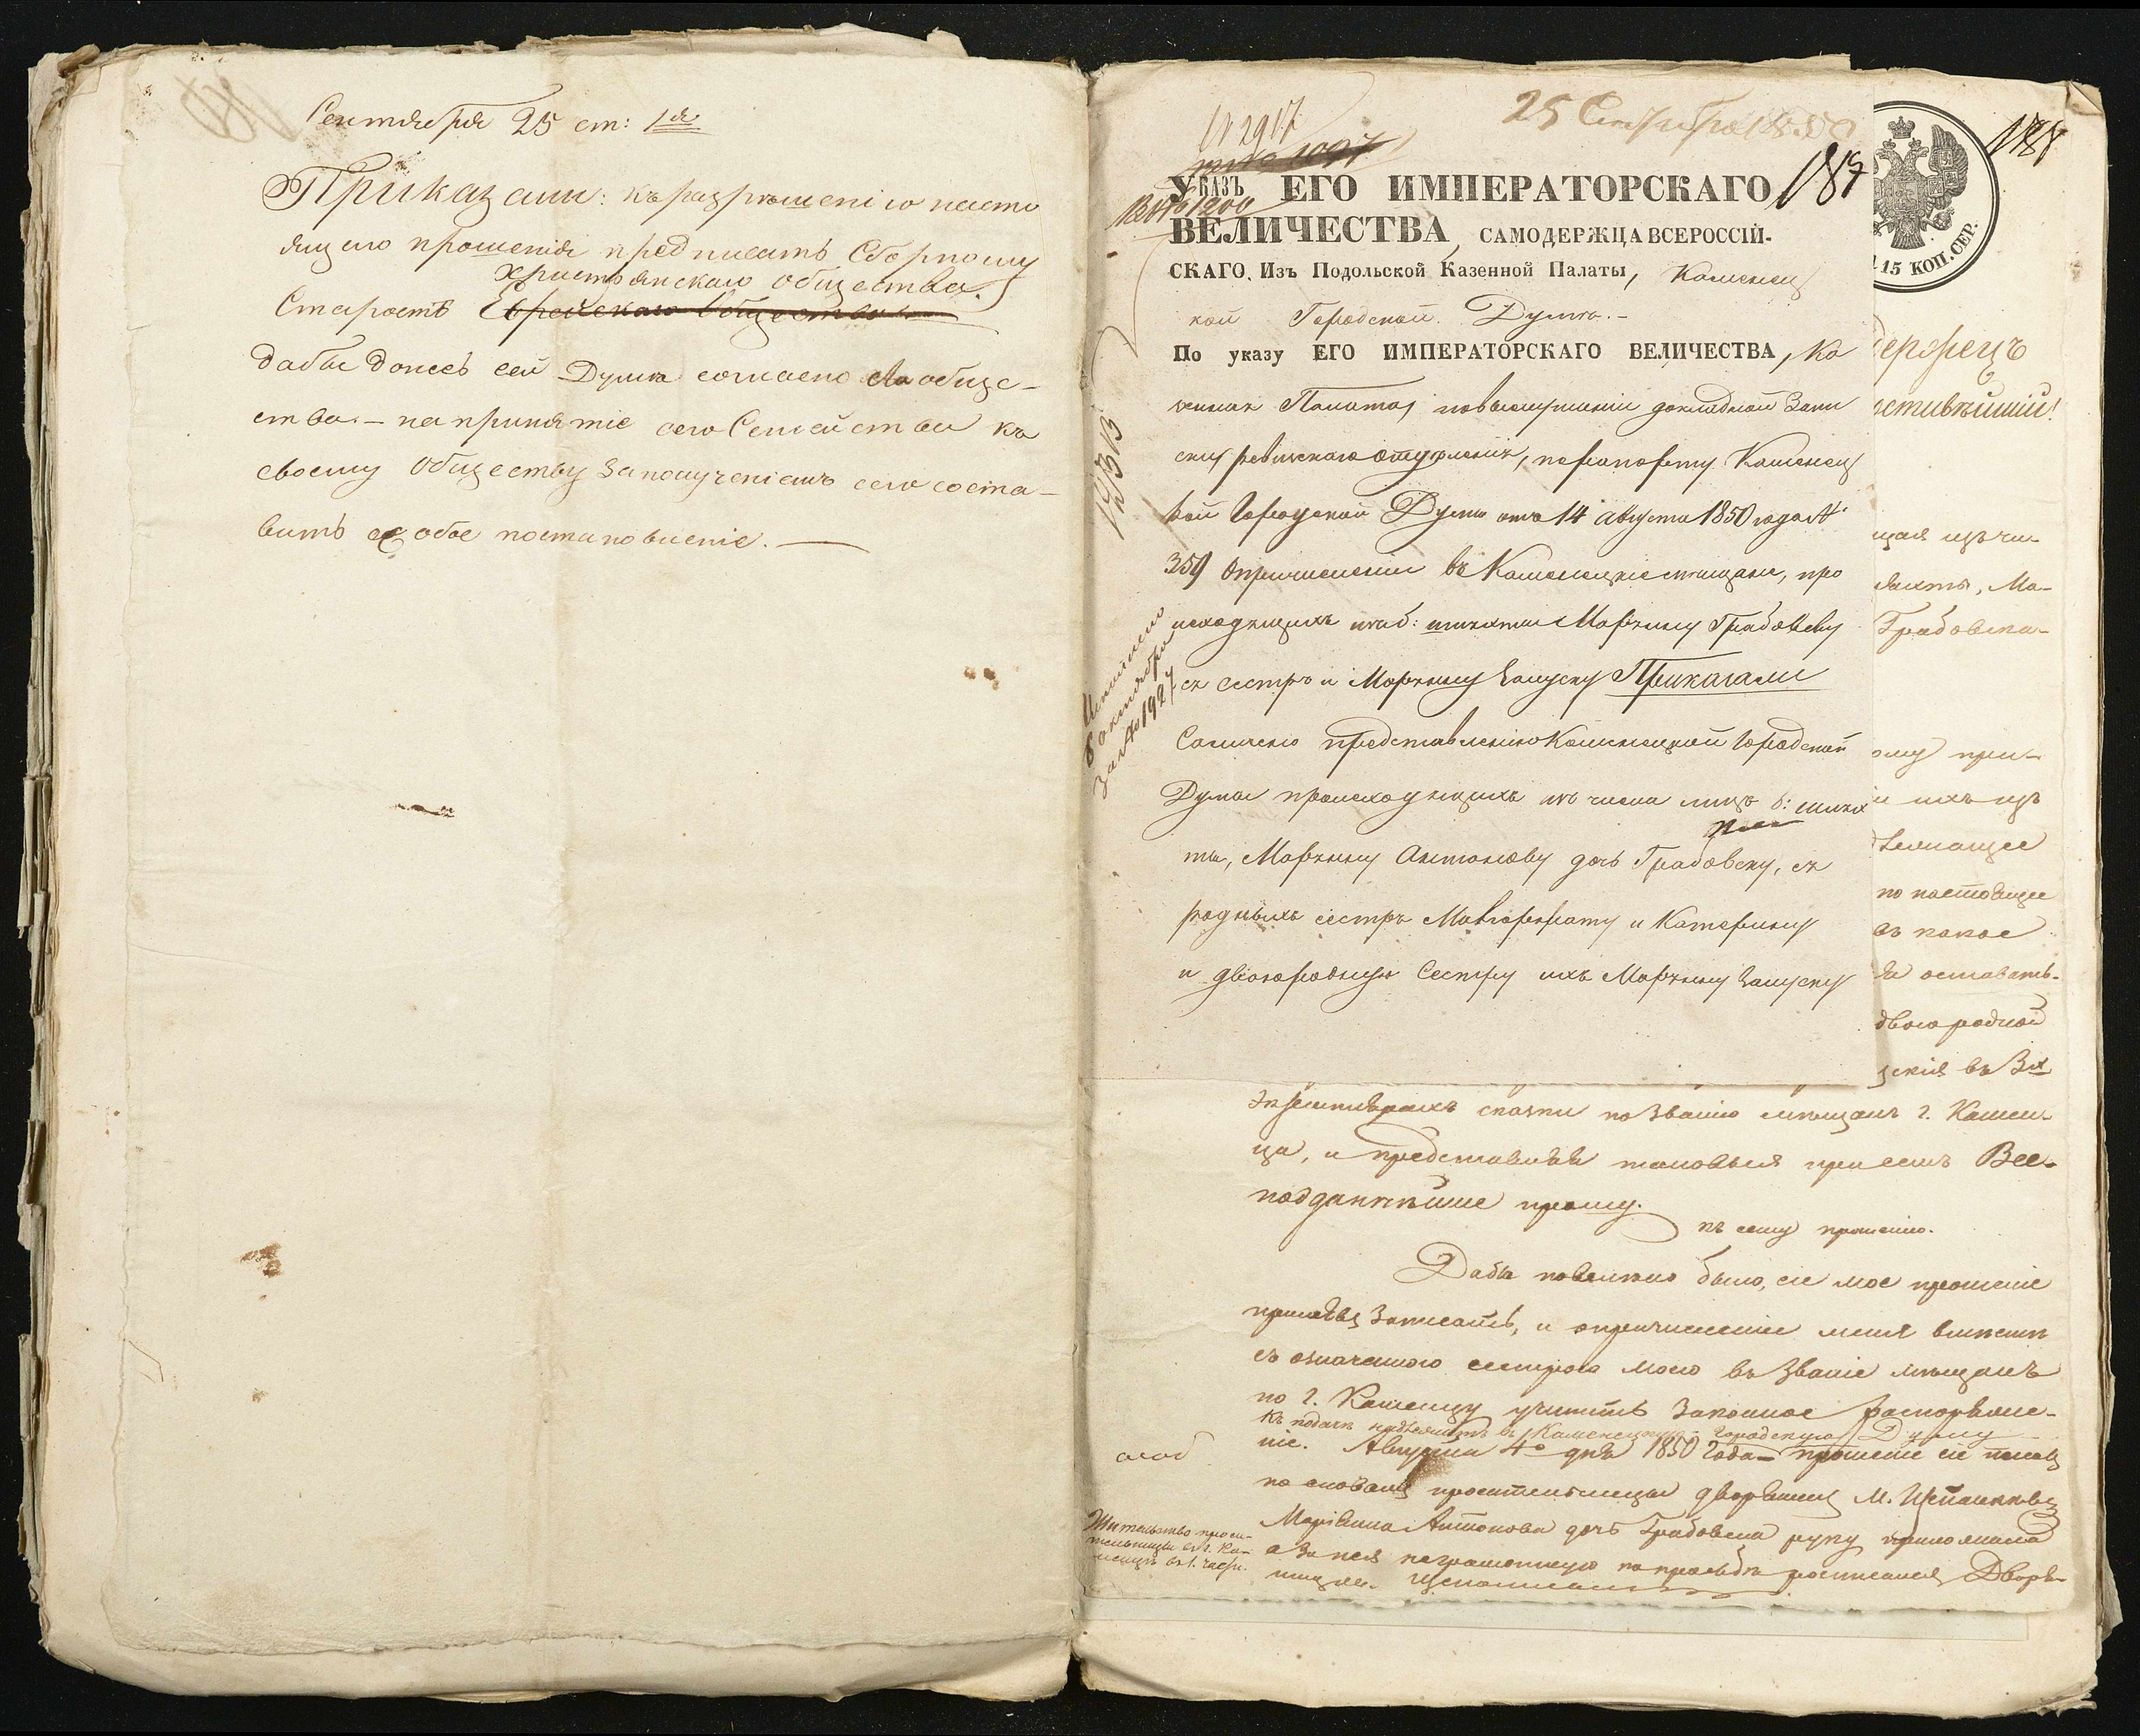 Сентября 25 ст: 1я
Приказали: къ разрѣшенію насто
ящаго прошенія предписать Сборному
христіянскаго общества
Старостѣ Еврейскаго Общества
дабы донесъ сей Думѣ согласно ли обще-
ство – на принятіе сего Семейства къ
своему Обществу за полученіемъ сего соста-
вить особое постановленіе. —
25 Сентября 1850
№ 2917
187
188
УКАЗЪ ЕГО ИМПЕРАТОРСКАГО
ВЕЛИЧЕСТВА, САМОДЕРЖЦА ВСЕРОССІЙ-
СКАГО, Изъ Подольской Казенной Палаты, Каменец
кой Городской Думѣ. –
По указу ЕГО ИМПЕРАТОРСКАГО ВЕЛИЧЕСТВА, Ка
зенная Палата, по выслушаніи докладной Запи
ски ревизскаго отдѣленія, по рапорту Каменец
кой Городской Думы отъ 14 Августа 1850 года №
359 о причисленіи въ Каменецкіе мѣщане, про
исходящихъ изъ б: шляхты Марянну Грабовску
съ сестръ и Марянну Залуску Приказали
Согласно представленію Каменецкой Городской
Думы происходящихъ изъ числа лицъ б: шлях
ты, Марянну Антонову дочь Грабовску, съ
родныхъ сестръ Маргарату и Катерину
и двоюродную Сестру ихъ Марянну Залуску
15 КОП. СЕР.
держецъ
стивѣйшій!
щая изъ чи-
ляхты, Ма-
Грабовска-
ому при-
и ихъ изъ
по настоящее
въ какое
да оставать-
двоюродной
скія въ 3х
экземплярахъ сказки по званію мѣщанъ г. Камен-
ца, и представивъ таковыя при семъ Все-
подданнѣйше прошу.
къ сему прошенію.
Дабы повелѣно было, сіе мое прошеніе
принявъ Записать, и о причисленіе меня вмѣстѣ
съ означеною сестрою моею въ званіе мѣщанъ
по г. Каменцу учинить законное распоряже-
Къ подачѣ надлежитъ въ Каменецкую Городскую Думу
ніе. Августа 4о дня 1850 Года – прошеніе сіе писавъ
со словъ просительницы дворянинъ М.
Маріянна Антонова дочь Грабовска руку приложила
а за нея неграмотную по прозьбѣ росписался Дворя-
нинъ
Исполнено
6 октября
за № 1927
Жительство проси-
тельницы въ г. Ка-
менцѣ въ 1. части.